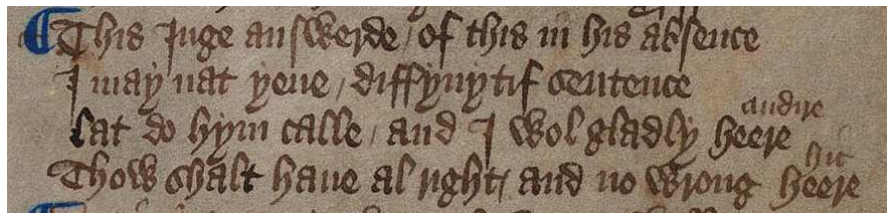 This Juge answerde / of this in his absence
I may nat yeue / diffynytif sentence
audire
Lat do hym calle / and I wol gladly heere
hic
Thow shalt haue al right / and no wrong heere